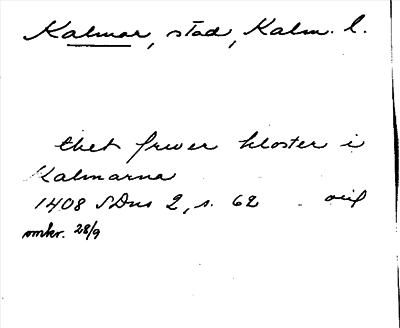 Kalmar, stad, Kalm. l.
thet frwer kloster i
Kalmarna
1408 SDns 2, s. 62 avif
omkr. 28/9